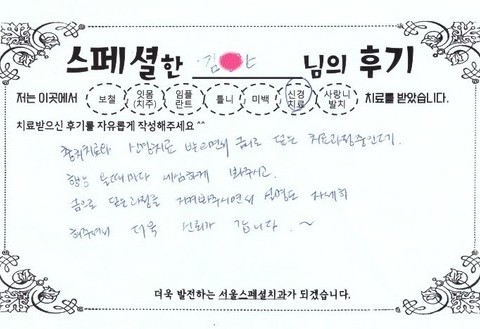 스페셜한 김 님의 후기
저는 이곳에서 보철 잇몸(치주) 임플란트 틀니 미백 신경치료 사랑니발치 치료를 받았습니다.
치료받으신 후기를 자유롭게 작성해주세요^^
충치치료와 신경치료 받으면서 금니로 덮는 치료과정중인데
항상 올때마다 세심하게 봐주시고
금으로 덮는과정을 지켜봐주시면서 설명도 자세히
해주셔서 더욱 신뢰가 갑니다. ~
더욱 발전하는 서울스페셜치과가 되겠습니다.